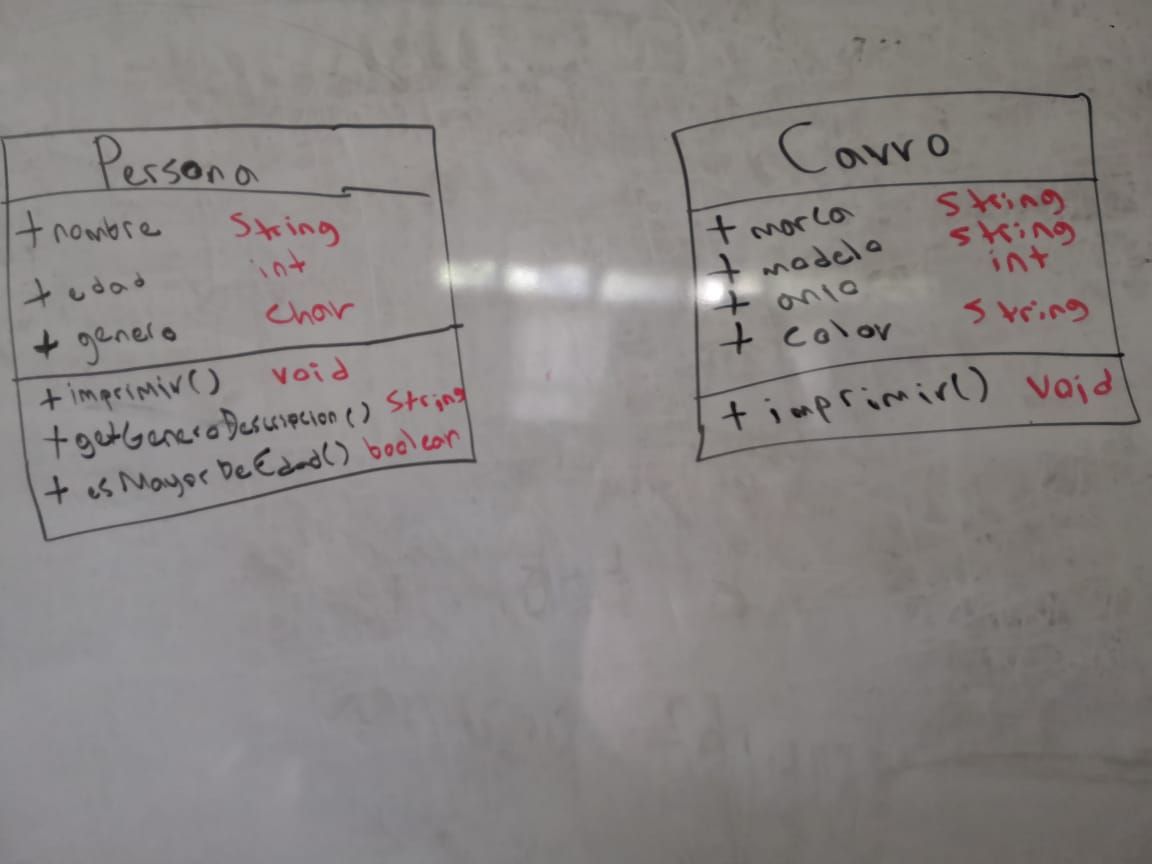 Persona
+ nombre String
+ edad int
+ genero char
+ imprimir() void
+ getGeneroDescripcion() String
+ esMayorDeEdad() boolean
Carro
+ marca String
+ modelo String
+ anio int
+ color String
+ imprimir() void